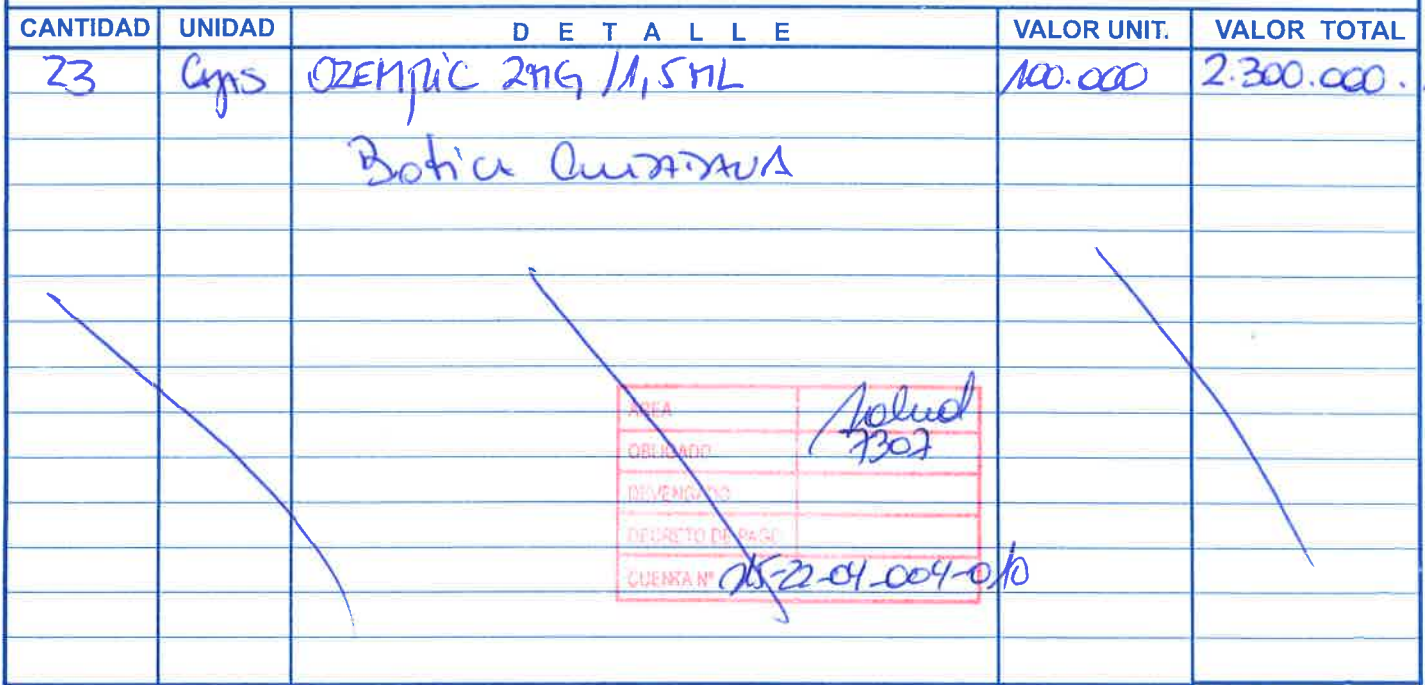 CANTIDAD UNIDAD DETALLE VALOR UNIT. VALOR TOTAL
23 OZEMPIC 2MG/1,5ML 100.000 2.300.000.
Botica CiudadaNA
AREA Salud
OBLIGADO 7307
DEVENGADO
DECRETO DE PAGO
CUENTA Nº 215-22-04-004-010